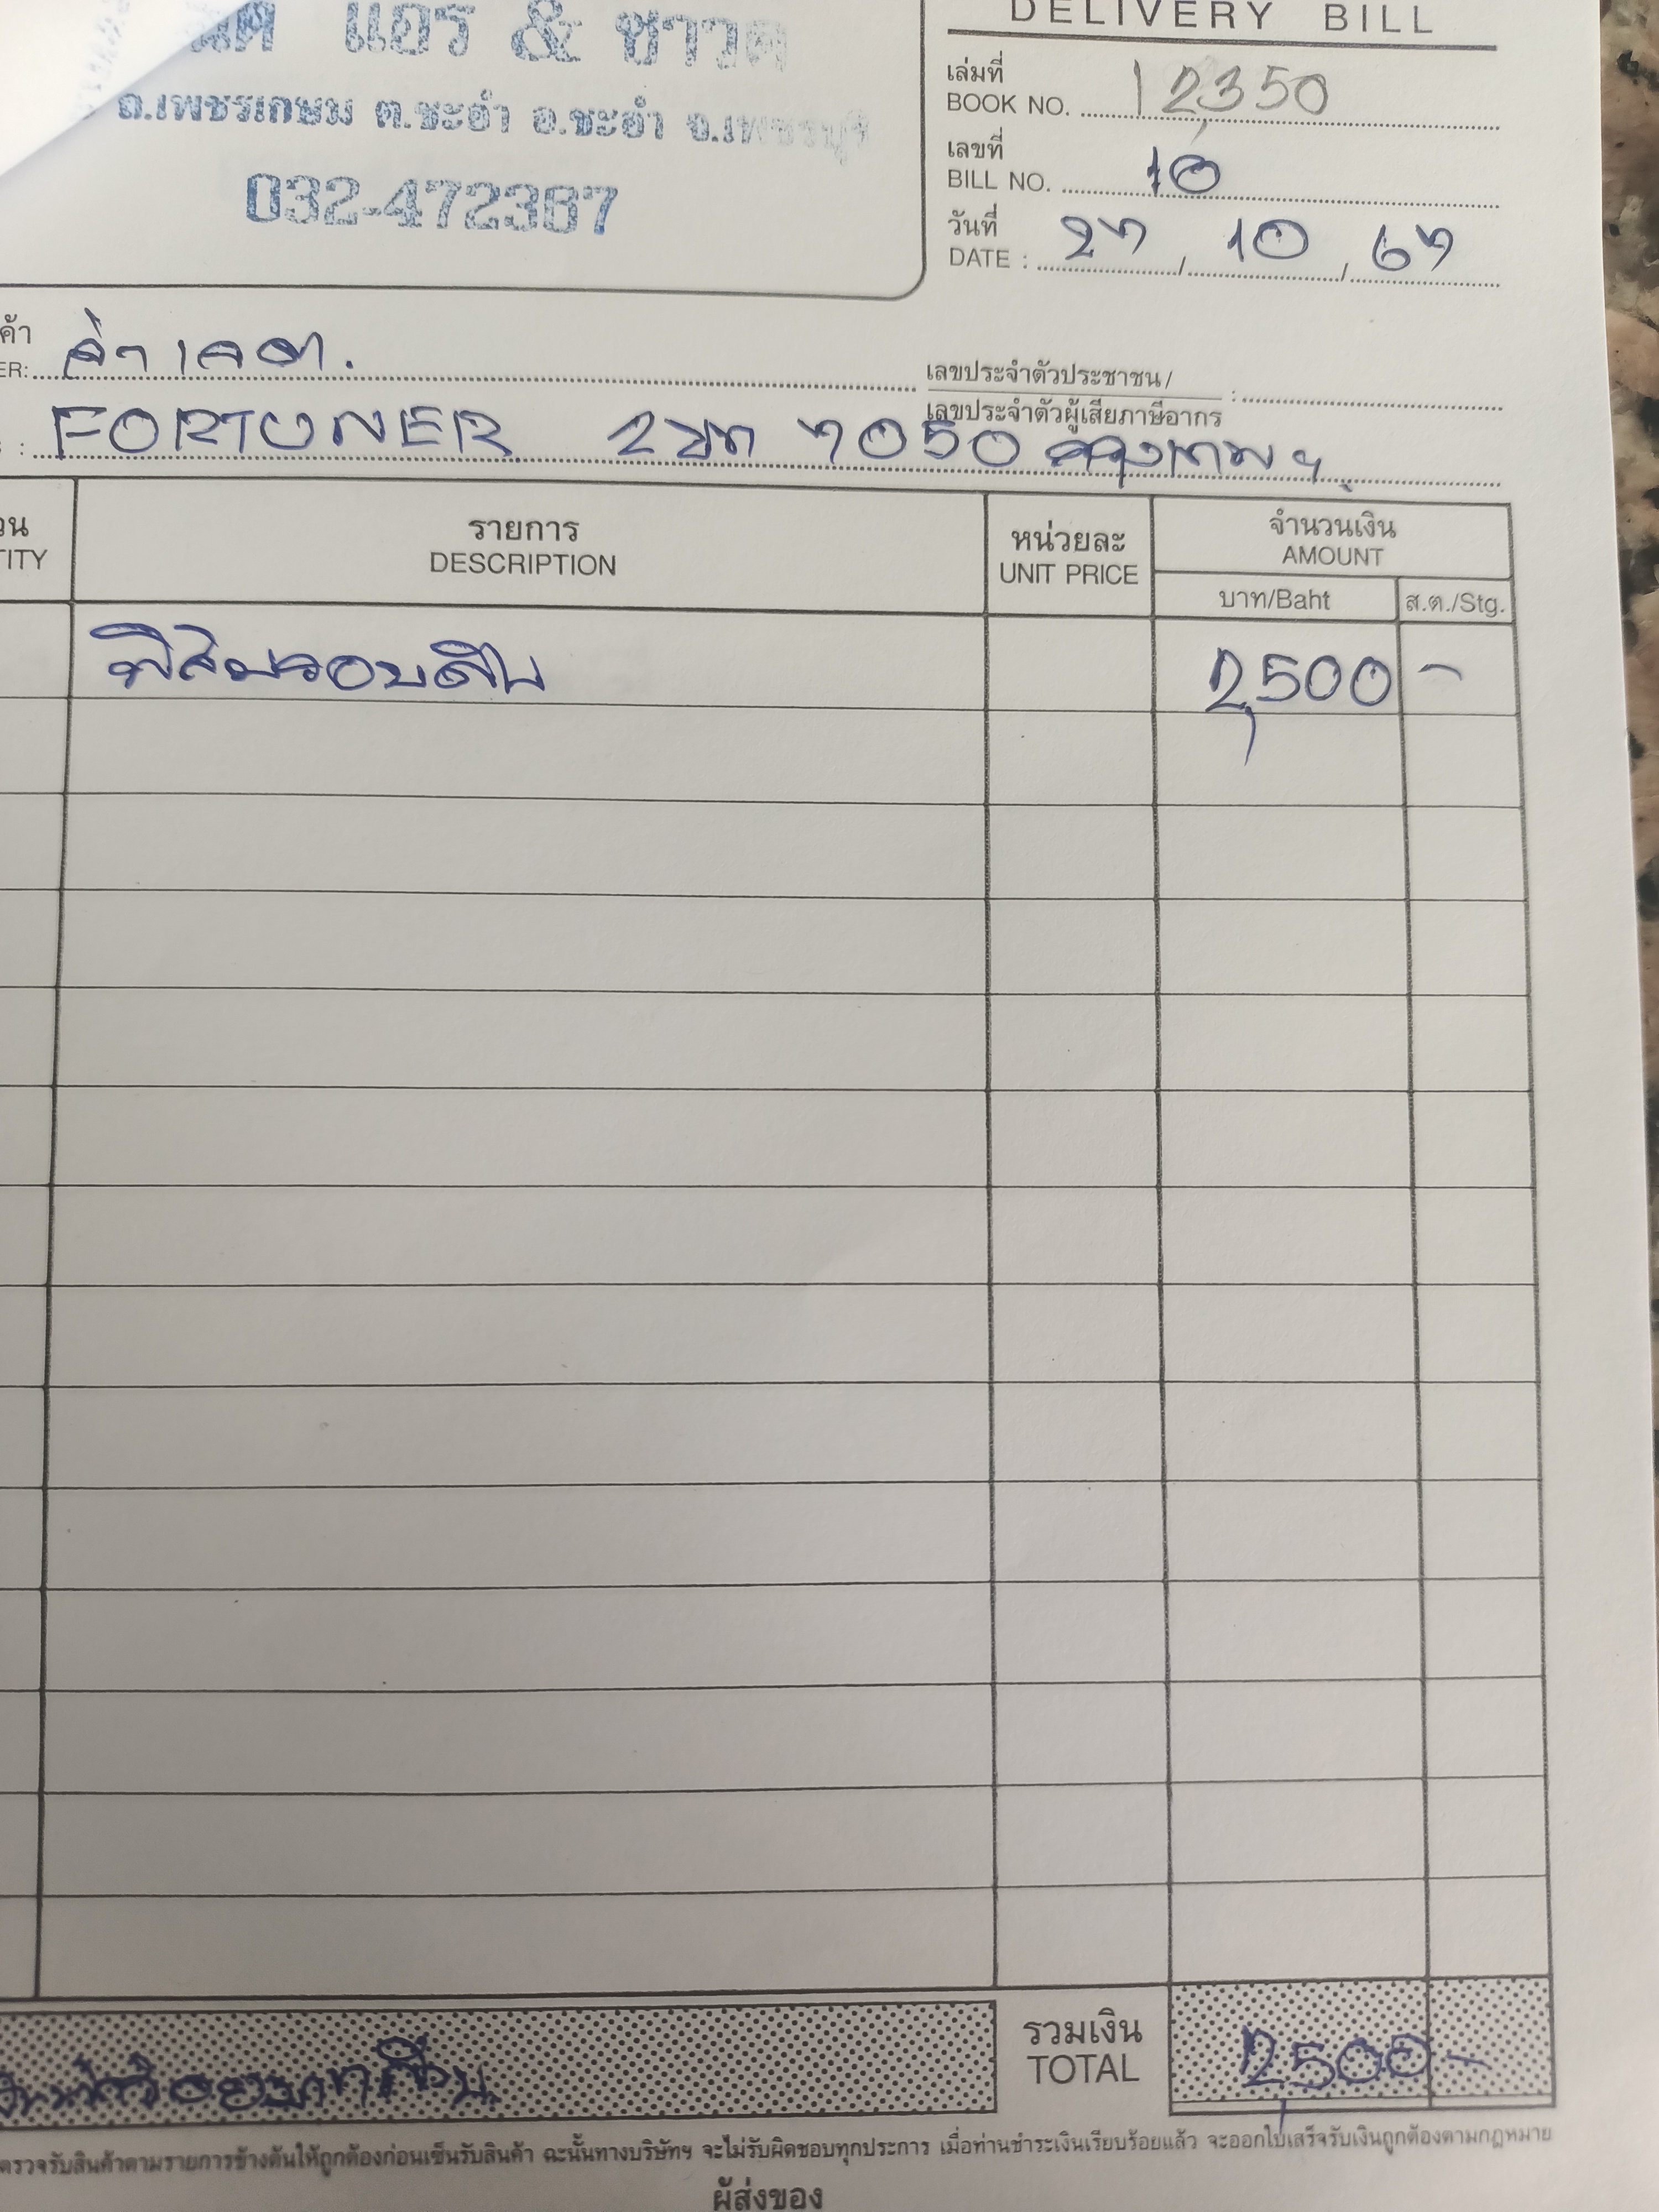 DELIVERY BILL
แอร์ & ซาวด
ถ.เพชรเกษม ต.ชะอำ อ.ชะอำ จ.เพชรบุรี
032-472387
เล่มที่
BOOK NO. 12,350
เลขที่
BILL NO. 10
วันที่
DATE : 27 / 10 / 67
เลขประจำตัวประชาชน /
เลขประจำตัวผู้เสียภาษีอากร :
FORTUNER 2ขก 7050 กรุงเทพฯ
รายการ
DESCRIPTION
หน่วยละ
UNIT PRICE
จำนวนเงิน
AMOUNT
บาท/Baht
ส.ต./Stg.
ฟิล์มรอบคัน 2,500 -
รวมเงิน
TOTAL
2,500 -
ตรวจรับสินค้าตามรายการข้างต้นให้ถูกต้องก่อนเซ็นรับสินค้า ฉะนั้นทางบริษัทฯ จะไม่รับผิดชอบทุกประการ เมื่อท่านชำระเงินเรียบร้อยแล้ว จะออกใบเสร็จรับเงินถูกต้องตามกฎหมาย
ผู้ส่งของ